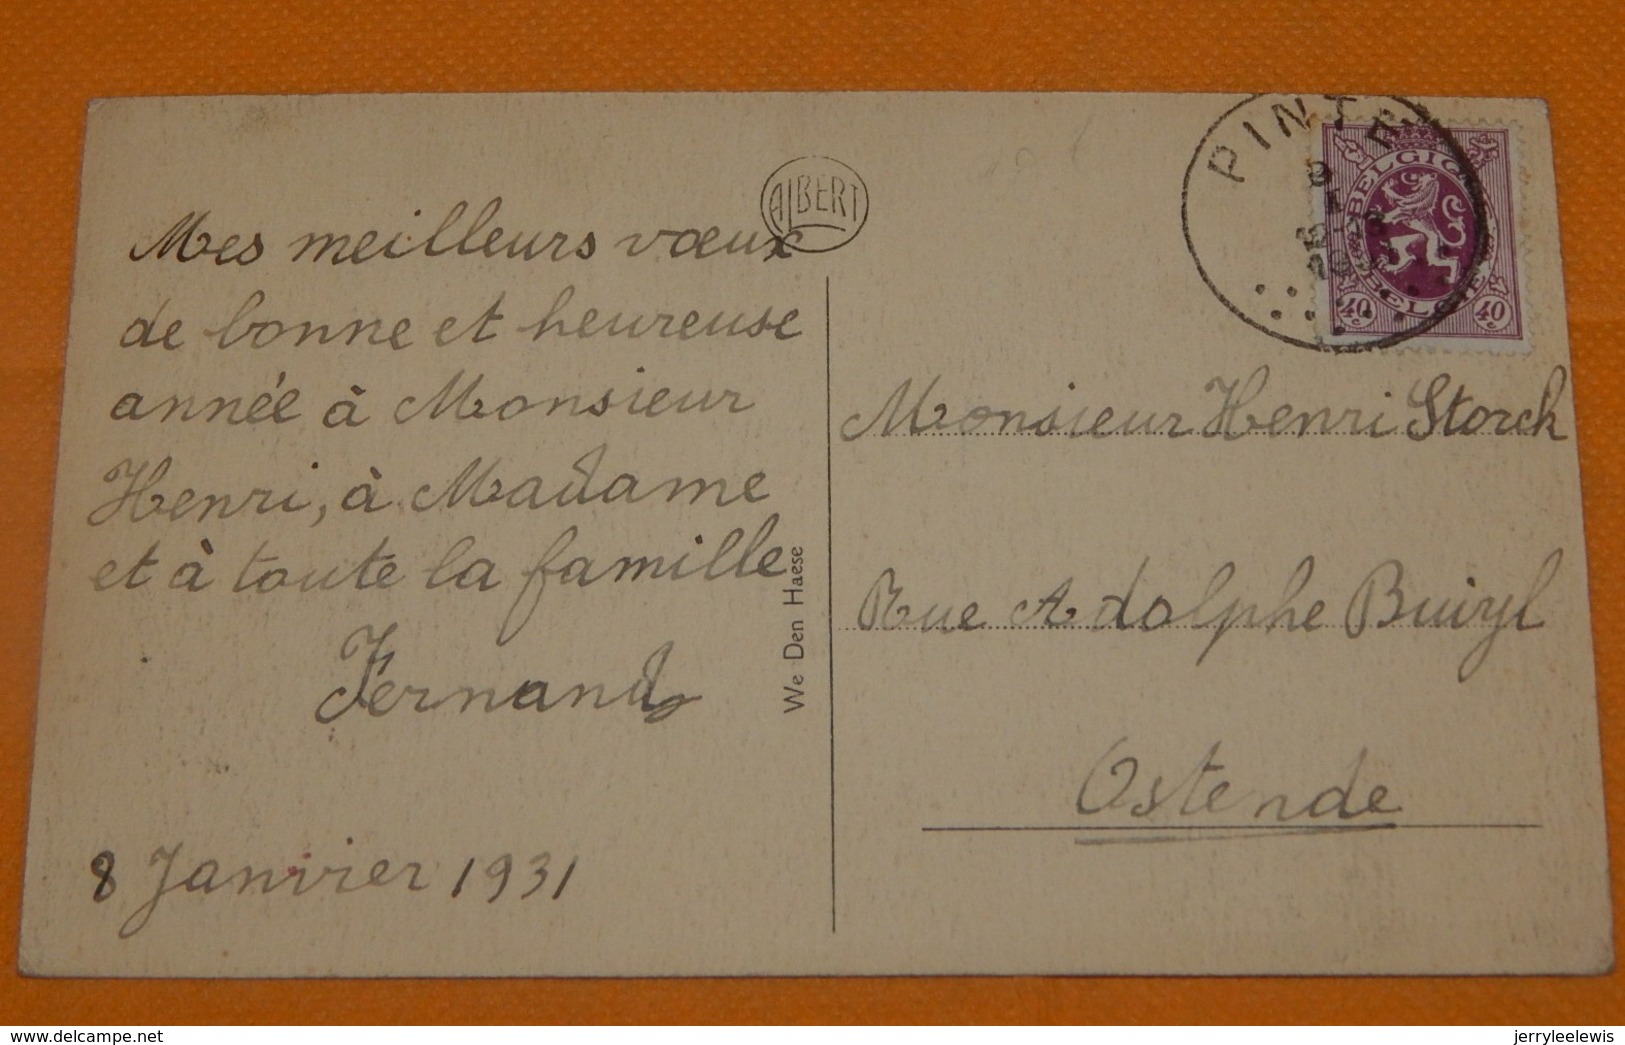 ALBERT
Mes meilleurs vœux
de bonne et heureuse
année à Monsieur
Henri, à Madame
et à toute la famille
Fernand
8 Janvier 1931
We Den Haese
PINTE
BELGIQUE
BELGIË
40c 40c
Monsieur Henri Storck
Rue Adolphe Buyl
Ostende
delcampe.net
jerryleelewis